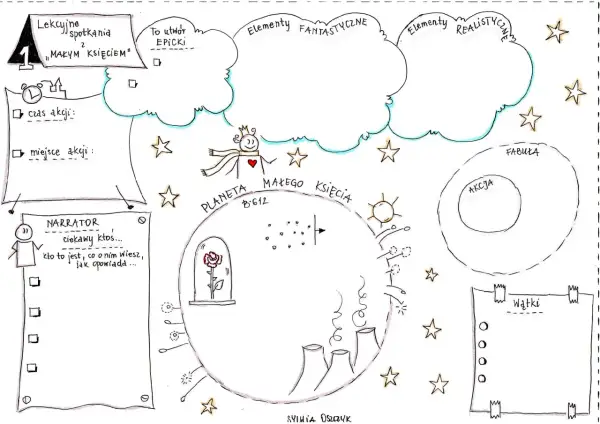 1
Lekcyjne
spotkania
z
„MAŁYM KSIĘCIEM”
To utwór
EPICKI
Elementy FANTASTYCZNE
Elementy REALISTYCZNE
czas akcji:
miejsce akcji:
PLANETA MAŁEGO KSIĘCIA
B-612
FABUŁA
AKCJA
NARRATOR
ciekawy ktoś...
kto to jest, co o nim wiesz,
jak opowiada...
Wątki